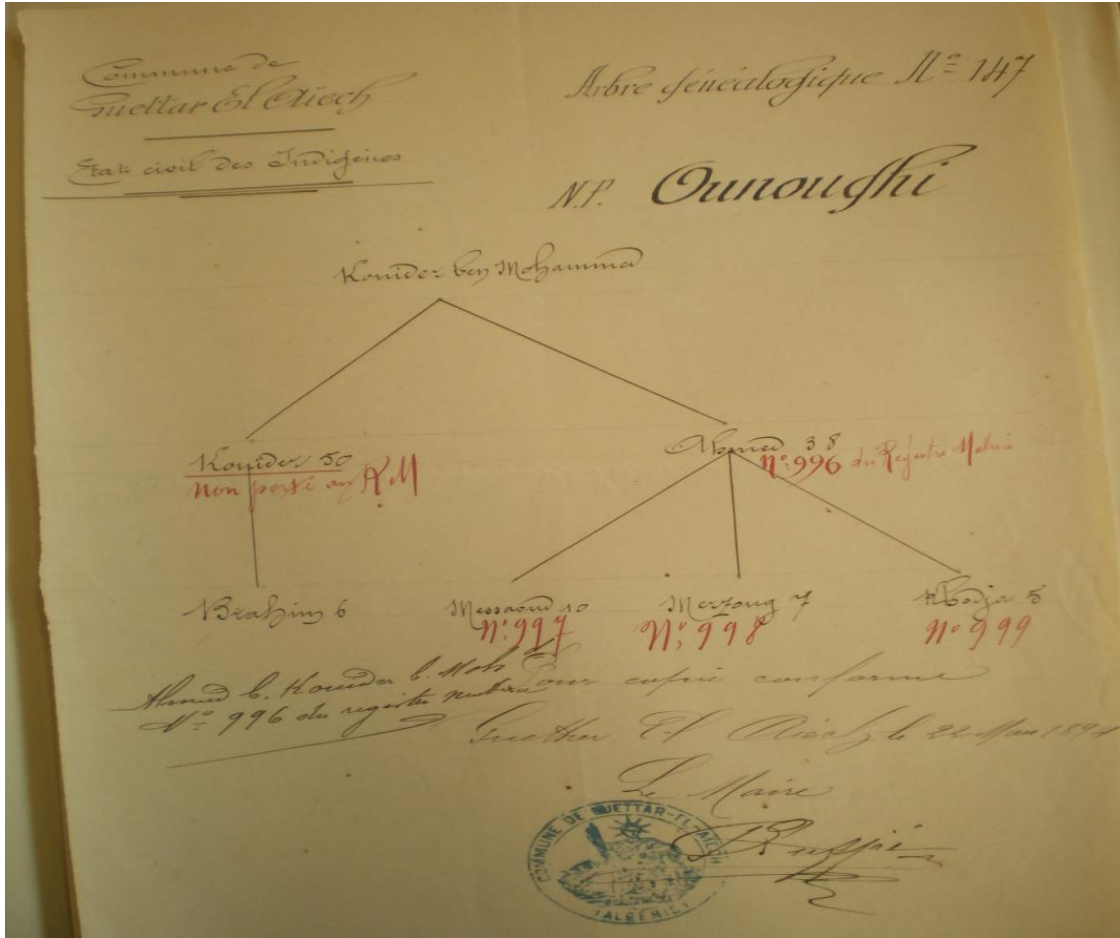 Commune de
Guettar El Aïech
Etat civil des Indigènes
Arbre généalogique Nº 147
N.P. Ounoughi
Kouider ben Mohammed
Kouider 50
Non porté au RM
Ahmed 38
Nº 996 du Registre Matrice
Brahim 6
Messaoud 10
Nº 997
Merzoug 7
Nº 998
Khodja 5
Nº 999
Ahmed b. Kouider b. Moh
Nº 996 du registre matrice
Pour copie conforme
Guettar El Aïech, le 22 1894
Le Maire
COMMUNE DE GUETTAR-EL-AIECH
(ALGÉRIE)